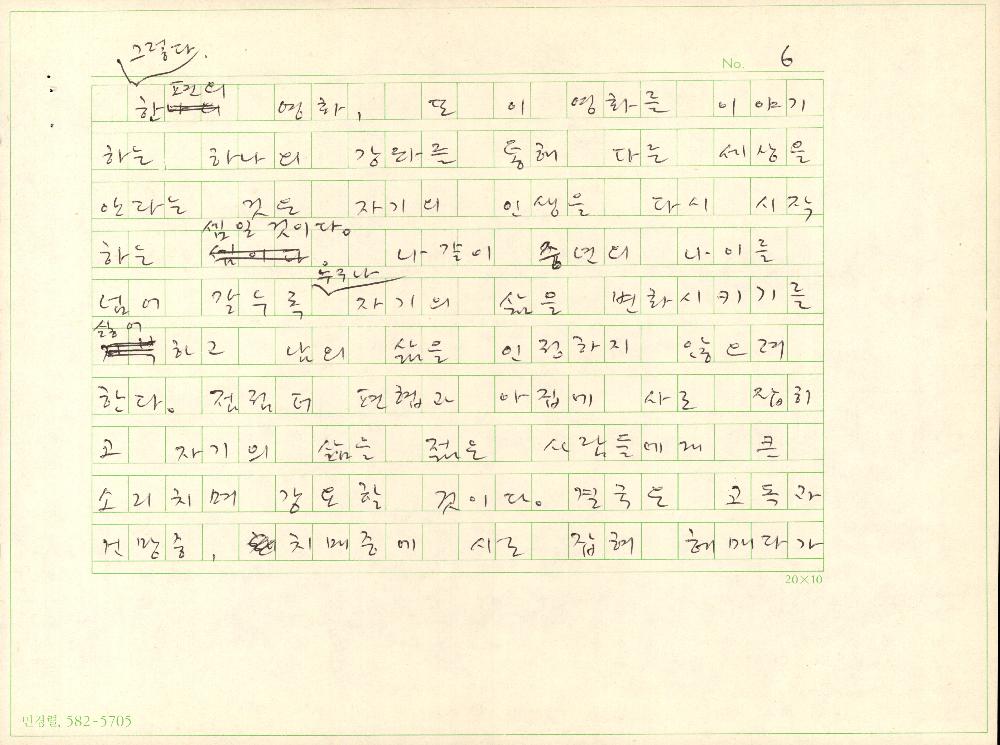 그렇다.
No. 6
한 편의 영화, 또 이 영화를 이야기
하는 하나의 강좌를 통해 다른 세상을
안다는 것은 자기의 인생을 다시 시작
하는 셈일 것이다. 나같이 중년의 나이를
넘어 갈수록 누구나 자기의 삶을 변화시키기를
싫어하고 남의 삶을 인정하지 않으려
한다. 점점 더 편협과 아집에 사로 잡히
고 자기의 삶을 젊은 사람들에게 큰
소리치며 강요할 것이다. 결국은 고독과
건망증, 치매증에 사로 잡혀 헤매다가
20×10
민경렬, 582-5705